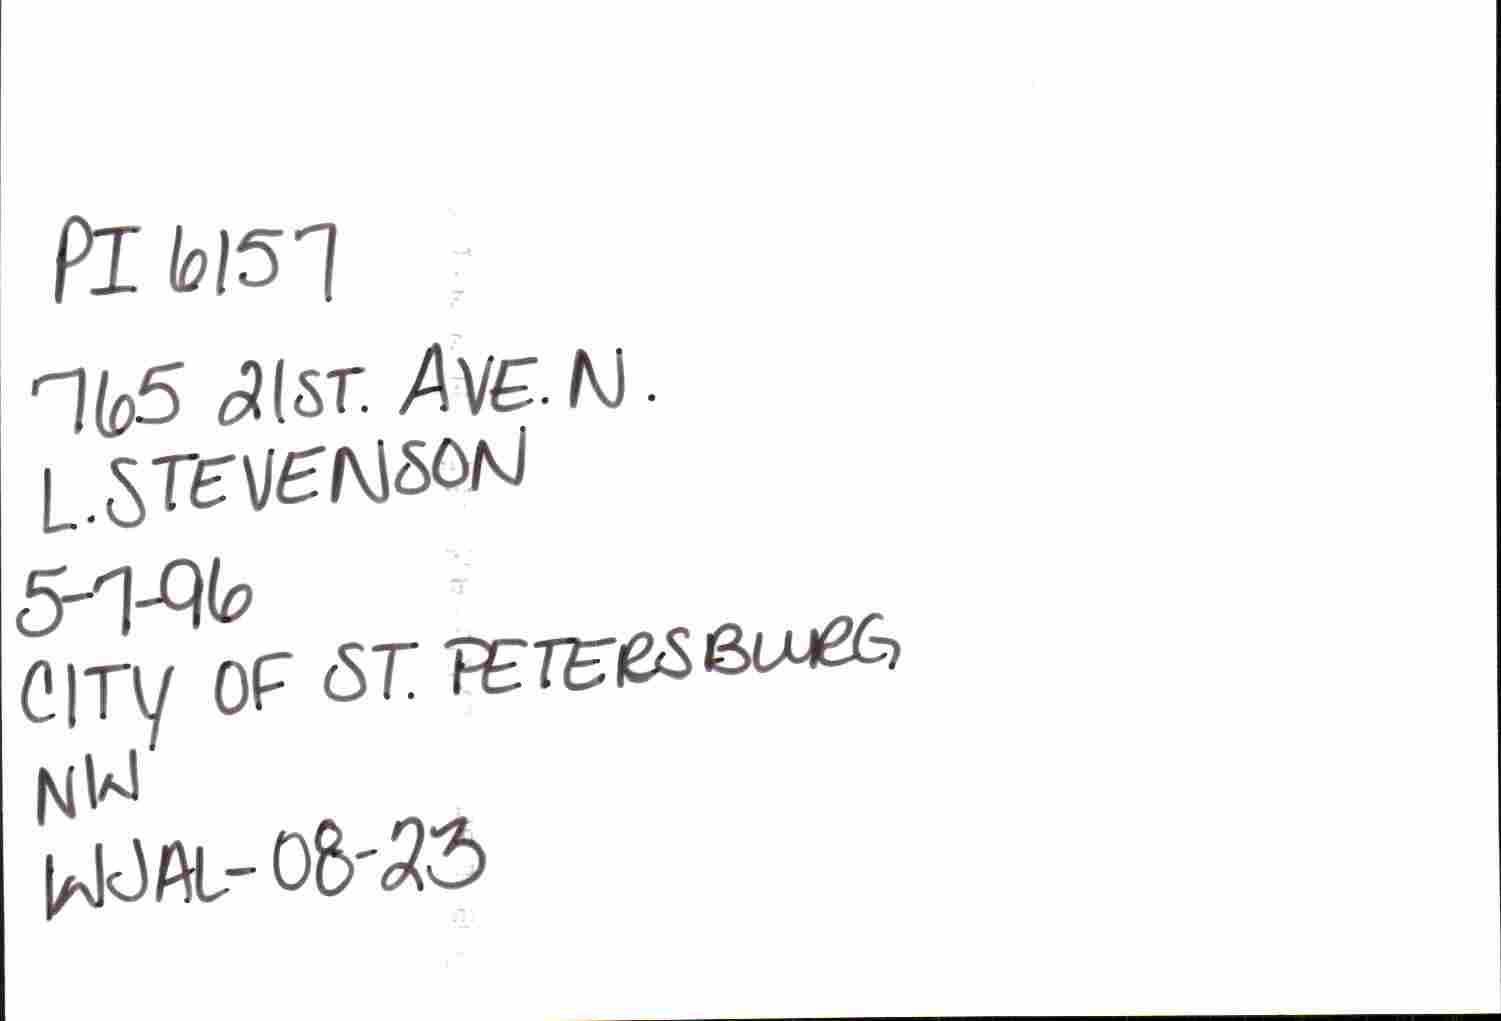 PI 6157
765 21ST. AVE. N.
L. STEVENSON
5-7-96
CITY OF ST. PETERSBURG
NW
WJAL-08-23